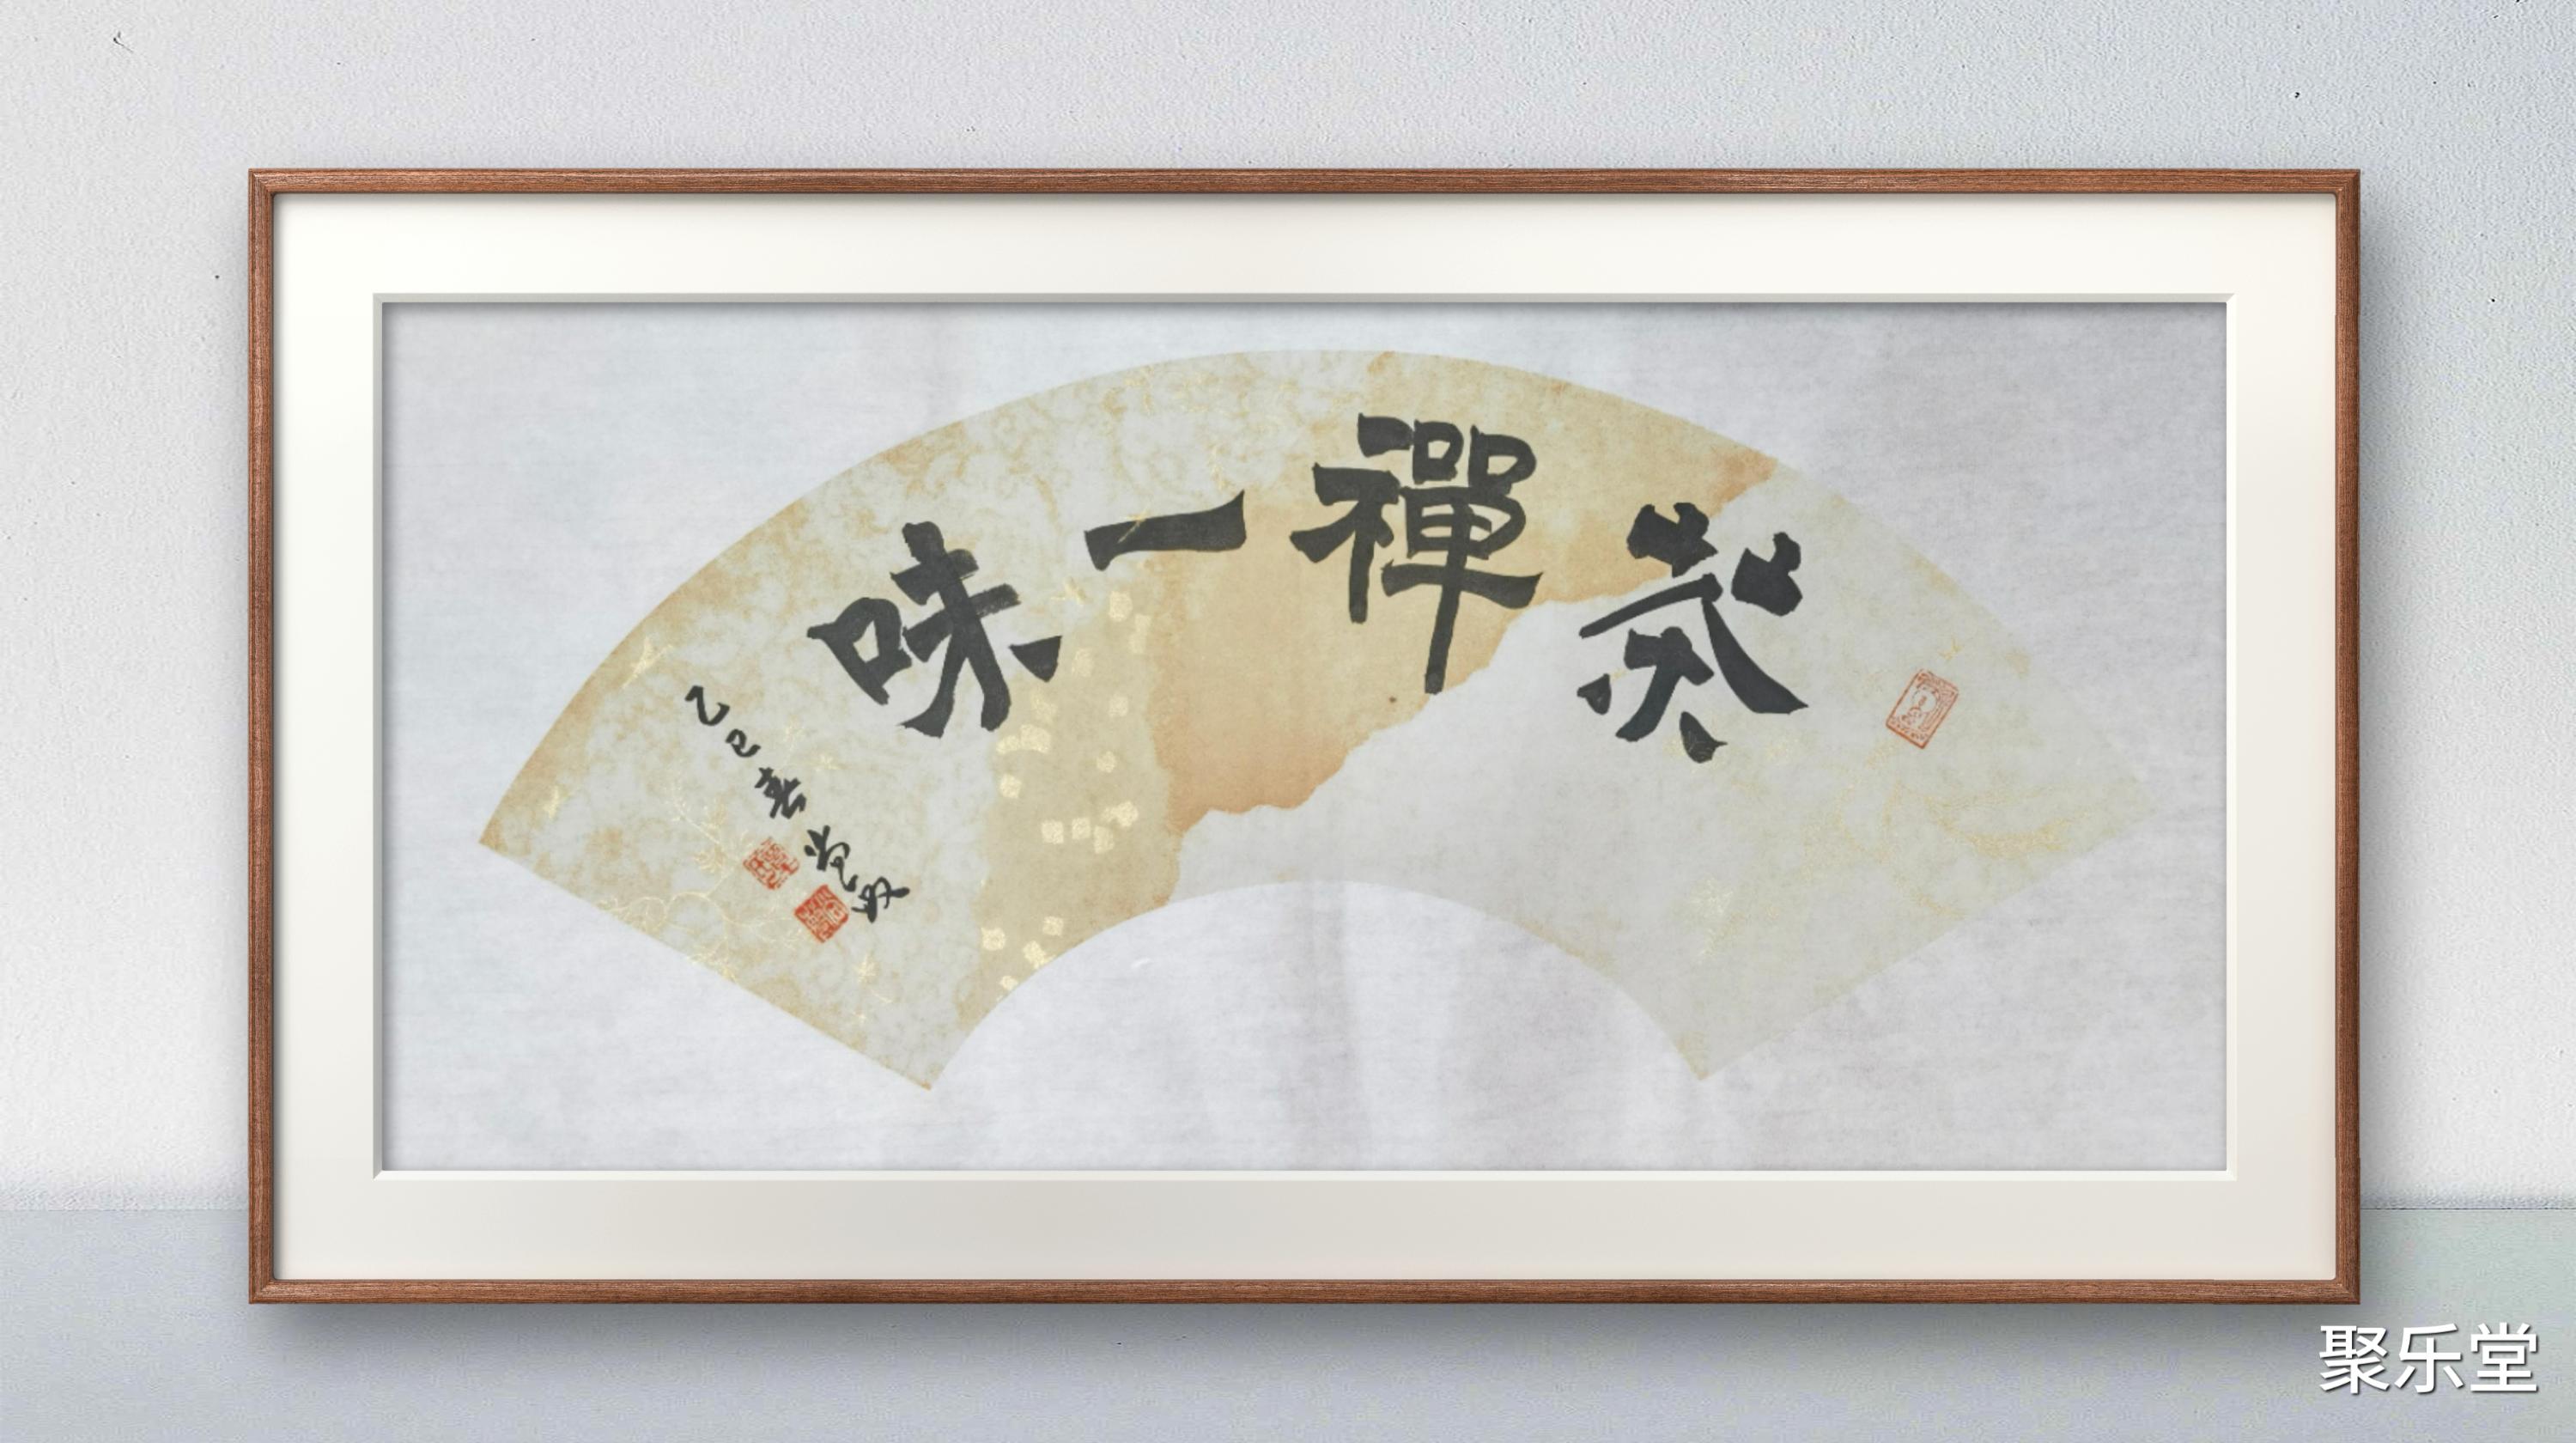 茶禪一味
乙巳春
聚乐堂